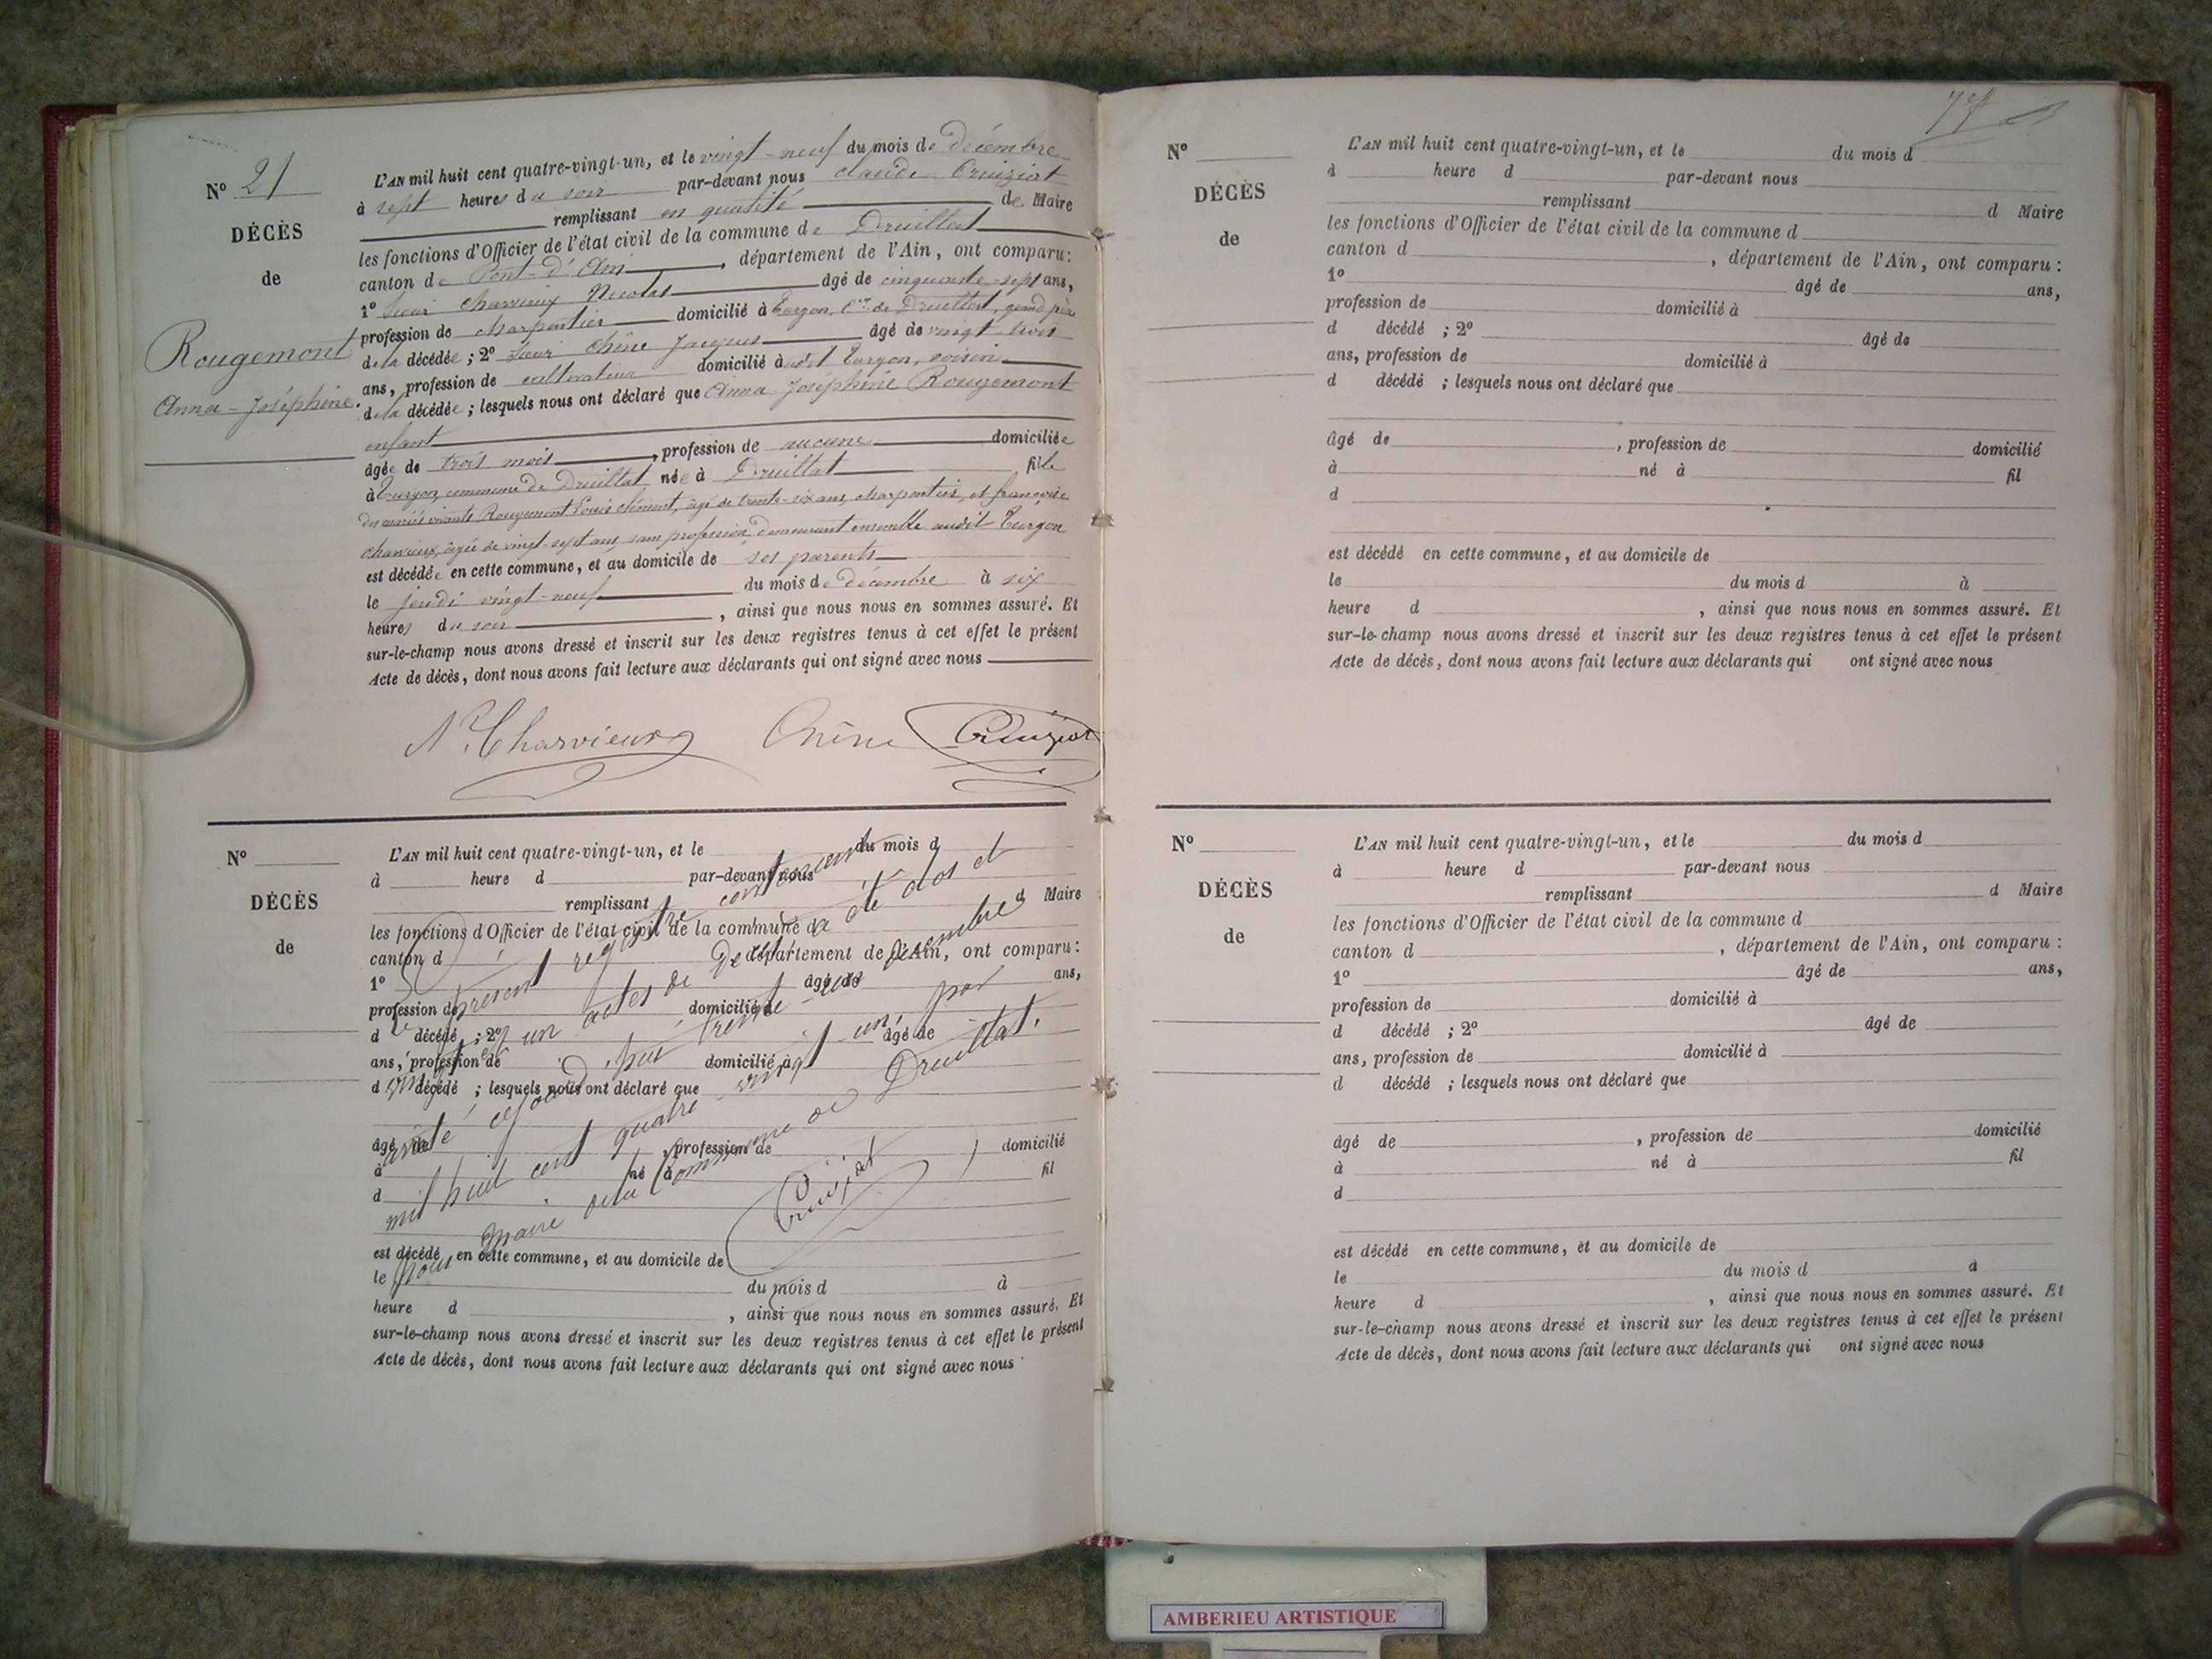 N° 21
DÉCÈS
de
Rougemont
Anna-Joséphine.
L'AN mil huit cent quatre-vingt-un, et le vingt-neuf du mois de décembre
à sept heures du soir par-devant nous Claude Cruiziat
remplissant en qualité de Maire
les fonctions d'Officier de l'état civil de la commune de Druillat
canton de Pont-d'Ain, département de l'Ain, ont comparu:
1° Sieur Charvieux Nicolas âgé de cinquante-sept ans,
profession de charpentier domicilié à Turgon, Cne de Druillat, grand père
de la décédée; 2° Sieur Chêne Jacques âgé de vingt trois
ans, profession de cultivateur domicilié audit Turgon, voisin
de la décédée; lesquels nous ont déclaré que Anna Joséphine Rougemont
enfant
âgée de trois mois, profession de aucune domiciliée
à Turgon, commune de Druillat née à Druillat fille
des mariés vivants Rougemont Louis Clément, âgé de trente-six ans, charpentier, et françoise
charvieux, âgée de vingt-sept ans, sans profession, demeurant ensemble audit Turgon
est décédée en cette commune, et au domicile de ses parents
le jeudi vingt-neuf du mois de décembre à six
heures du soir, ainsi que nous nous en sommes assuré. Et
sur-le-champ nous avons dressé et inscrit sur les deux registres tenus à cet effet le présent
Acte de décès, dont nous avons fait lecture aux déclarants qui ont signé avec nous
N. Charvieux Chêne Cruiziat
N°
DÉCÈS
de
L'AN mil huit cent quatre-vingt-un, et le du mois d
à heure d par-devant nous
remplissant d Maire
les fonctions d'Officier de l'état civil de la commune d
canton d département de l'Ain, ont comparu:
1° âgé de ans,
profession de domicilié à
d décédé ; 2° âgé de
ans, profession de domicilié à
d décédé ; lesquels nous ont déclaré que
âgé de , profession de domicilié
à né à fil
d
est décédé en cette commune, et au domicile de
le du mois d à
heure d , ainsi que nous nous en sommes assuré. Et
sur-le-champ nous avons dressé et inscrit sur les deux registres tenus à cet effet le présent
Acte de décès, dont nous avons fait lecture aux déclarants qui ont signé avec nous
Le présent registre contenant
vingt et un actes de Décès a été clos et
arrêté cejourd'hui trente-un Décembre
mil huit cent quatre-vingt-un, par
Nous Maire de la Commune de Druillat.
Cruiziat
N°
DÉCÈS
de
L'AN mil huit cent quatre-vingt-un, et le du mois d
à heure d par-devant nous
remplissant d Maire
les fonctions d'Officier de l'état civil de la commune d
canton d , département de l'Ain, ont comparu:
1° âgé de ans,
profession de domicilié à
d décédé ; 2° âgé de
ans, profession de domicilié à
d décédé ; lesquels nous ont déclaré que
âgé de , profession de domicilié
à né à fil
d
est décédé en cette commune, et au domicile de
le du mois d à
heure d , ainsi que nous nous en sommes assuré. Et
sur-le-champ nous avons dressé et inscrit sur les deux registres tenus à cet effet le présent
Acte de décès, dont nous avons fait lecture aux déclarants qui ont signé avec nous
N°
DÉCÈS
de
L'AN mil huit cent quatre-vingt-un, et le du mois d
à heure d par-devant nous
remplissant d Maire
les fonctions d'Officier de l'état civil de la commune d
canton d , département de l'Ain, ont comparu:
1° âgé de ans,
profession de domicilié à
d décédé ; 2° âgé de
ans, profession de domicilié à
d décédé ; lesquels nous ont déclaré que
âgé de , profession de domicilié
à né à fil
d
est décédé en cette commune, et au domicile de
le du mois d à
heure d , ainsi que nous nous en sommes assuré. Et
sur-le-champ nous avons dressé et inscrit sur les deux registres tenus à cet effet le présent
Acte de décès, dont nous avons fait lecture aux déclarants qui ont signé avec nous
AMBERIEU ARTISTIQUE